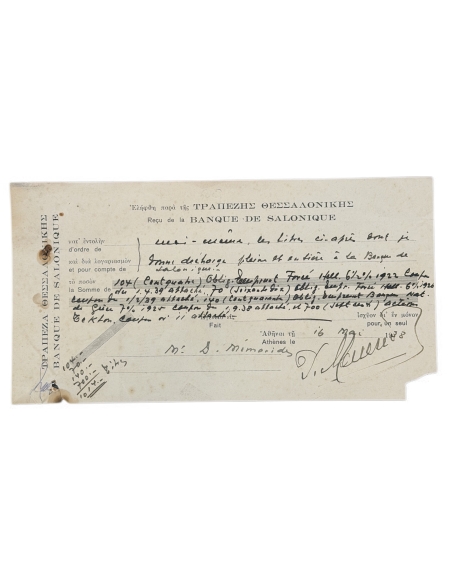 ΤΡΑΠΕΖΑ ΘΕΣΣΑΛΟΝΙΚΗΣ
BANQUE DE SALONIQUE
Ἐλήφθη παρὰ τῆς ΤΡΑΠΕΖΗΣ ΘΕΣΣΑΛΟΝΙΚΗΣ
Reçu de la BANQUE DE SALONIQUE
κατ' ἐντολὴν
d'ordre de moi-même, les titres ci-après dont je
καὶ διὰ λογαριασμὸν
et pour compte de donne décharge pleine et entière à la Banque de
Salonique.
τὸ ποσὸν
104 (Centquatre) Oblig. Emprunt Forcé Hell. 6½% 1922 Coupon
la Somme de du 1.4.39 attaché, 70 (soixante dix) Oblig. Empr. Forcé Hell. 6% 19
Coupon du 1/2/39 attaché, 140 (Centquarante) Oblig. Emprunt
de Grèce 7% 1925 Coupon 9.38 attaché, et 700 (sept cent)
Coupon No 11 attaché
Ἰσχῦον δι' ἓν μόνον
Fait pour un seul
Ἀθῆναι τῇ
Athènes le 16 Mai 1938
Mr S. Mimaroides
104.-
70.-
140.-
700.- titres
1014.-